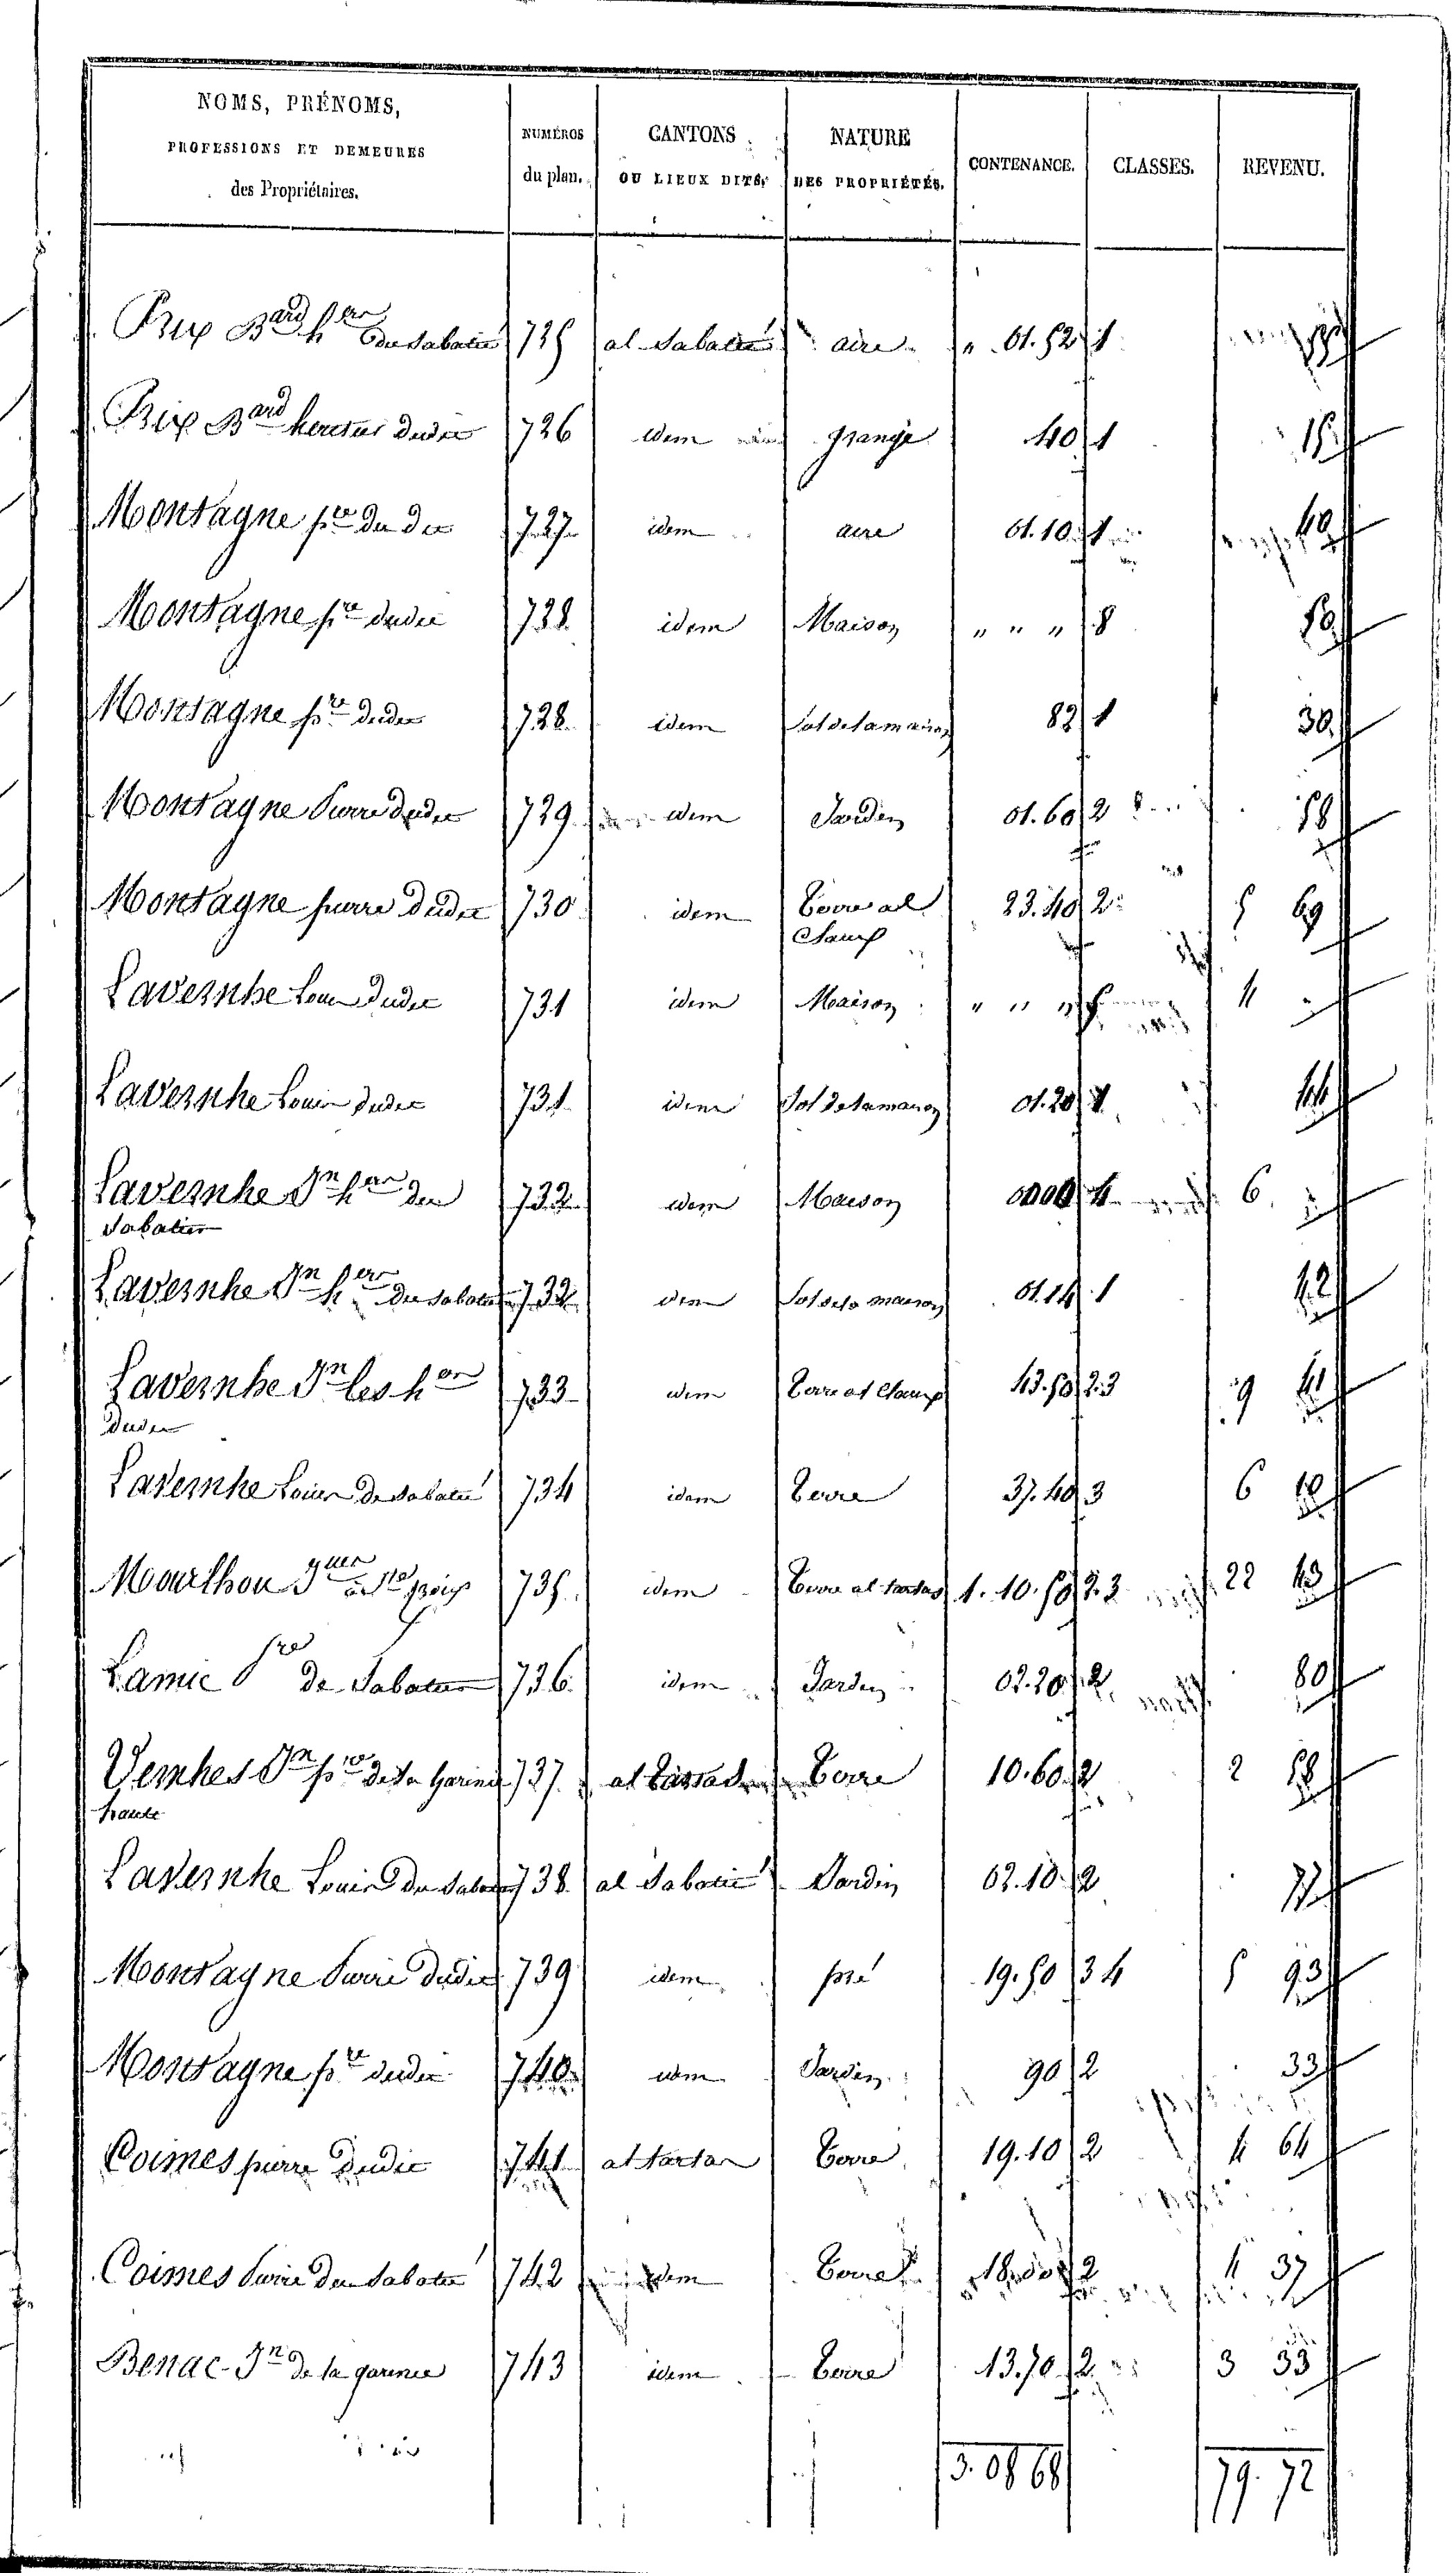 NOMS, PRÉNOMS, PROFESSIONS ET DEMEURES des Propriétaires. NUMÉROS du plan. CANTONS OU LIEUX DITS. NATURE DES PROPRIÉTÉS. CONTENANCE. CLASSES. REVENU.
Prix Bard hers du Sabatié 725 al Sabatié aire " 01.52 1
Prix Bard heretier dudit 726 idem grange 40 1 15
Montagne pre du dit 727 idem aire 01.10 1 40
Montagne pre dudit 728 idem Maison " " " 8 50
Montagne pre dudit 728 idem Sol de la maison 82 1 30
Montagne Pierre dudit 729 idem Jardin 01.60 2 58
Montagne pierre dudit 730 idem Terre al 23.40 2 5 69
Camp
Lavernhe Louis dudit 731 idem Maison " " " 4 "
Lavernhe Louis dudit 731 idem Sol de la maison 01.20 1 44
Lavernhe Jn hers du 732 idem Maison 4 6 "
Sabatier
Lavernhe Jn hers du Sabatié 732 idem Sol de la maison 01.14 1 42
Lavernhe Jn les hers 733 idem Terre al Camp 43.50 2.3 9 41
dudit
Lavernhe Louis de Sabatié 734 idem Terre 37.40 3 6 10
Mourlhou Jques à Ste 735 idem Terre al tartas 1.10.50 2.3 22 43
Lamic Pre de Sabatier 736 idem Jardin 02.20 2 80
Vernhes Jn pre de la Garinie 737 al Terre 10.60 2 2 58
haute
Lavernhe Louis du Sabatié 738 al Sabatié Jardin 02.10 2 77
Montagne Pierre dudit 739 idem pré 19.50 3 4 5 93
Montagne pre dudit 740 idem Jardin 90 2 33
Coimes pierre dudit 741 al tartas Terre 19.10 2 4 64
Coimes Pierre du Sabatié 742 idem Terre 18.00 2 4 37
Benac Jn de la garinie 743 idem Terre 13.70 2 3 33
3.08 68 79.72